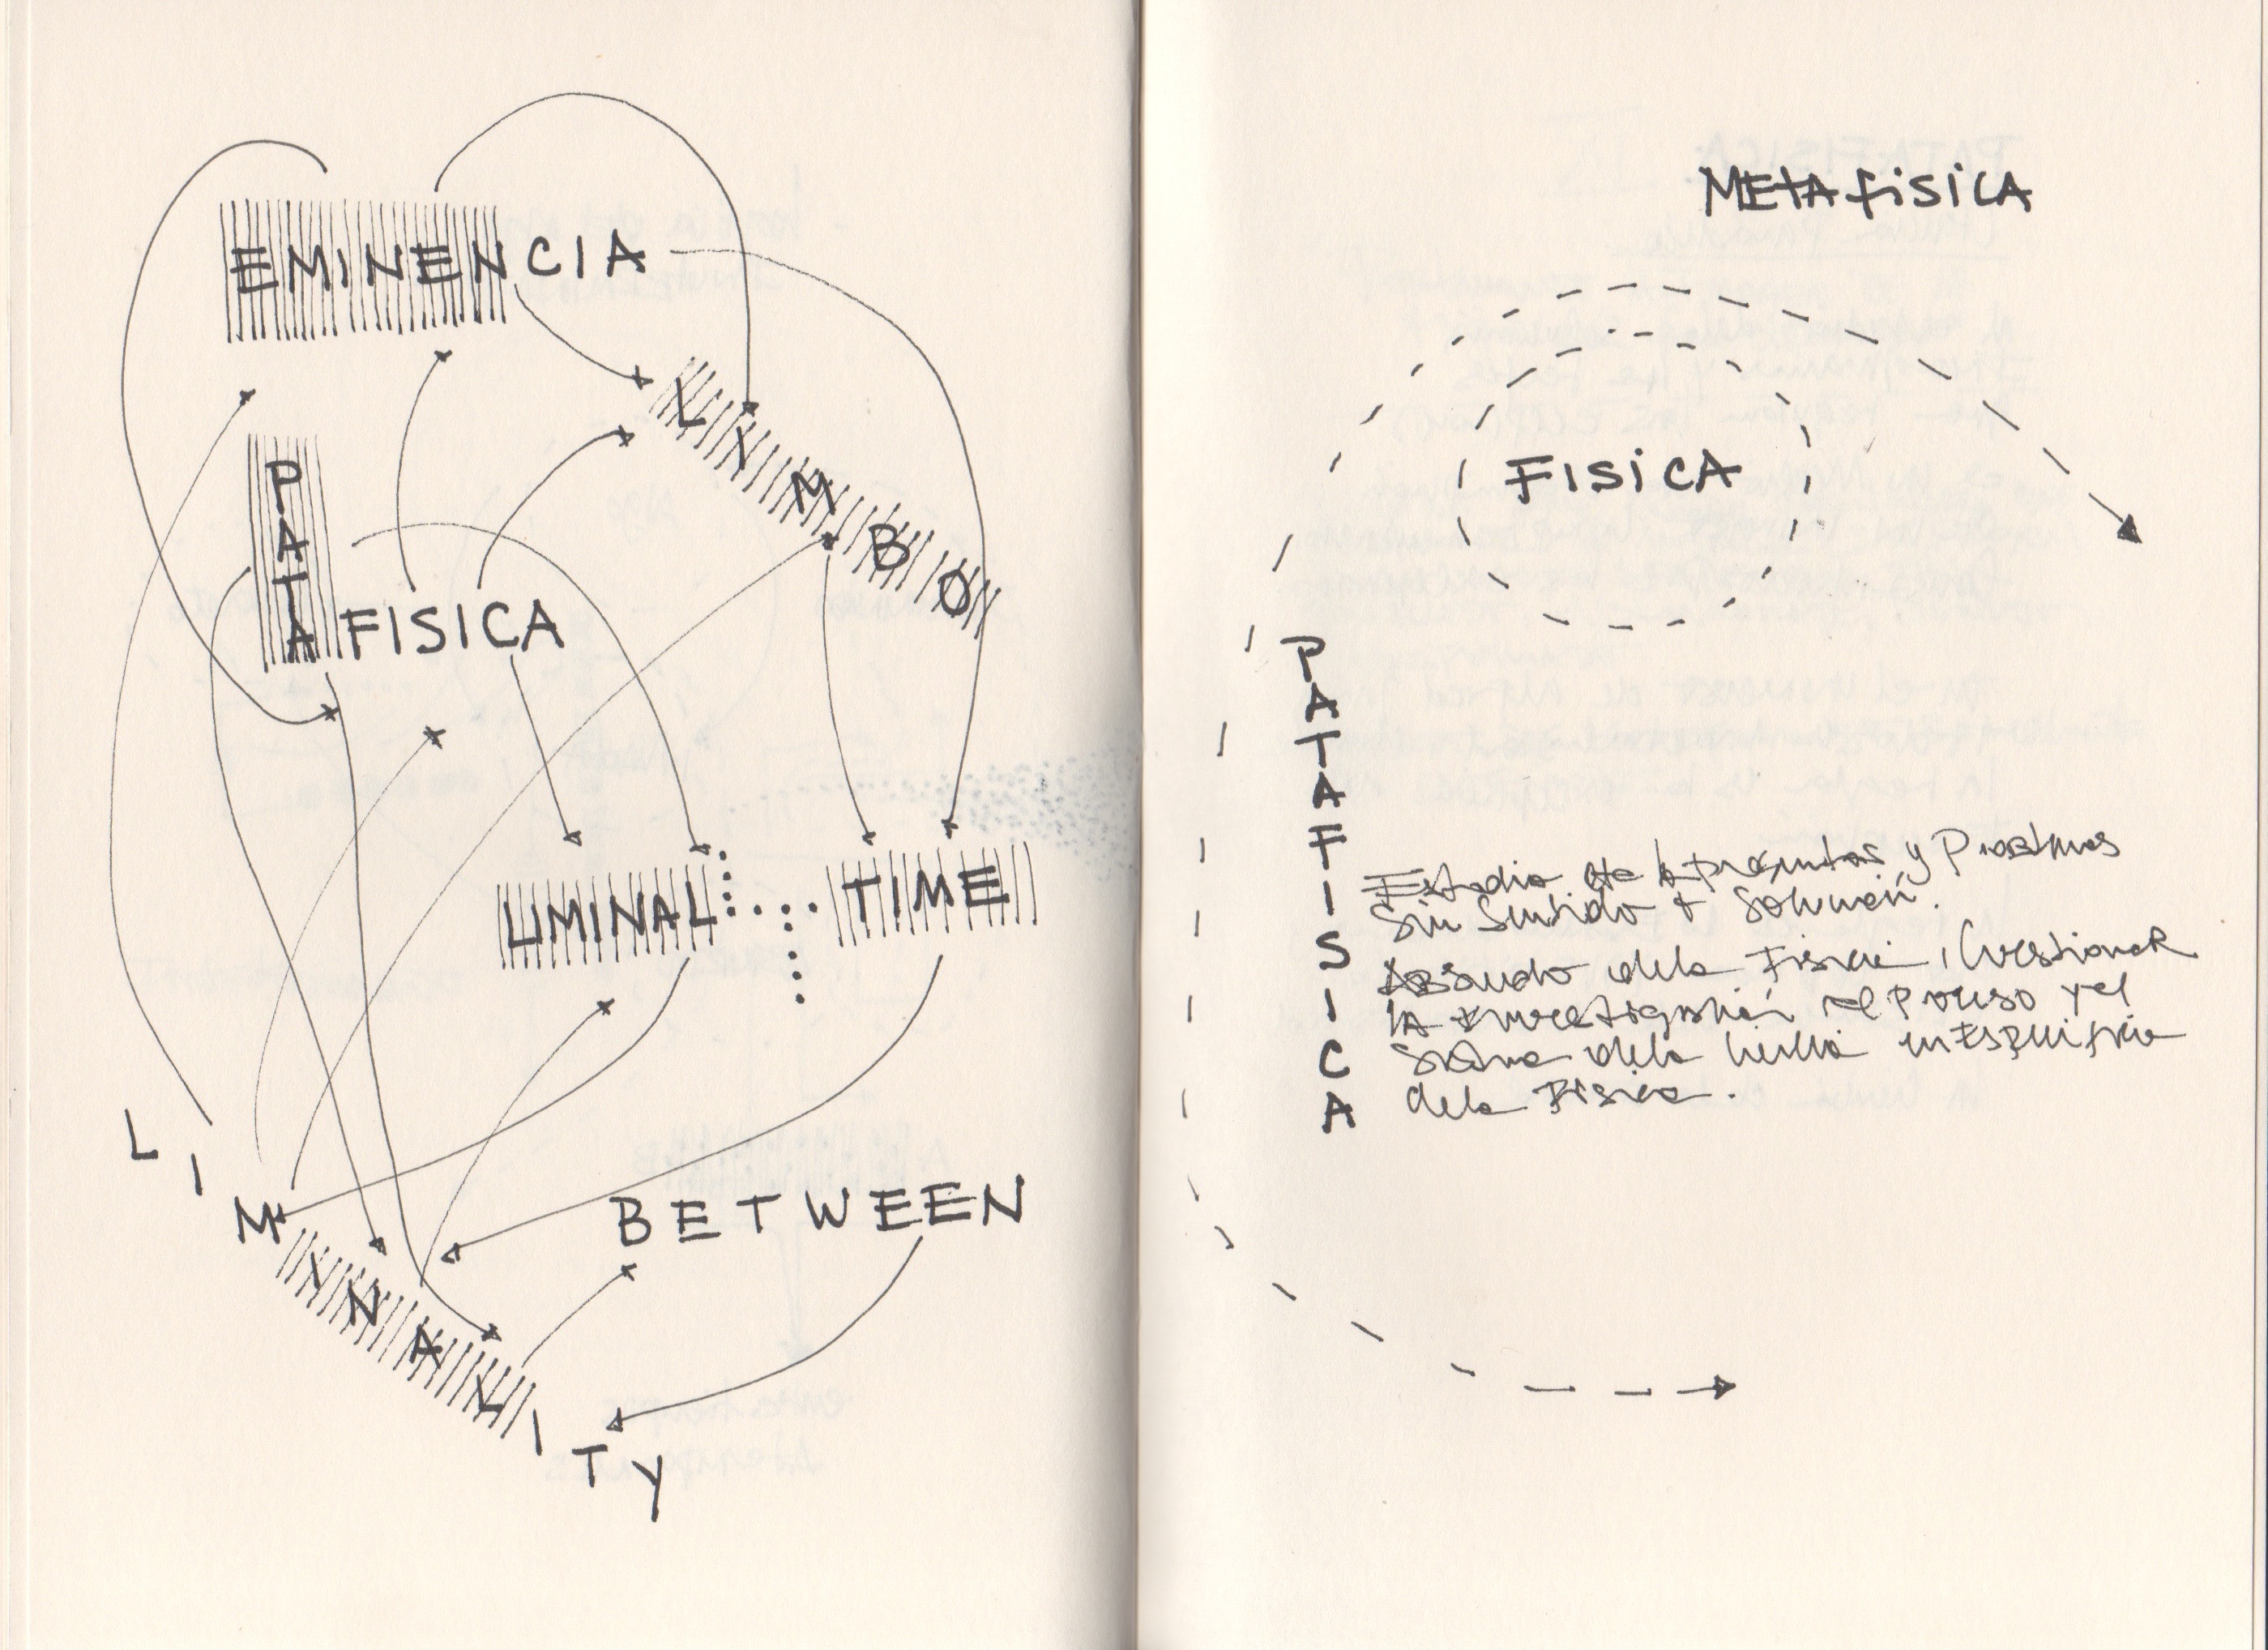 EMINENCIA
LIMBO
PATAFISICA
LIMINAL TIME
BETWEEN
LIMINALITY
METAFISICA
FISICA
PATAFISICA
Estudio de preguntas y Problemas
Sin Sentido + Solución.
Absurdo dela Fisica, Cuestionar
la investigación el proceso y el
dela
dela Fisica.